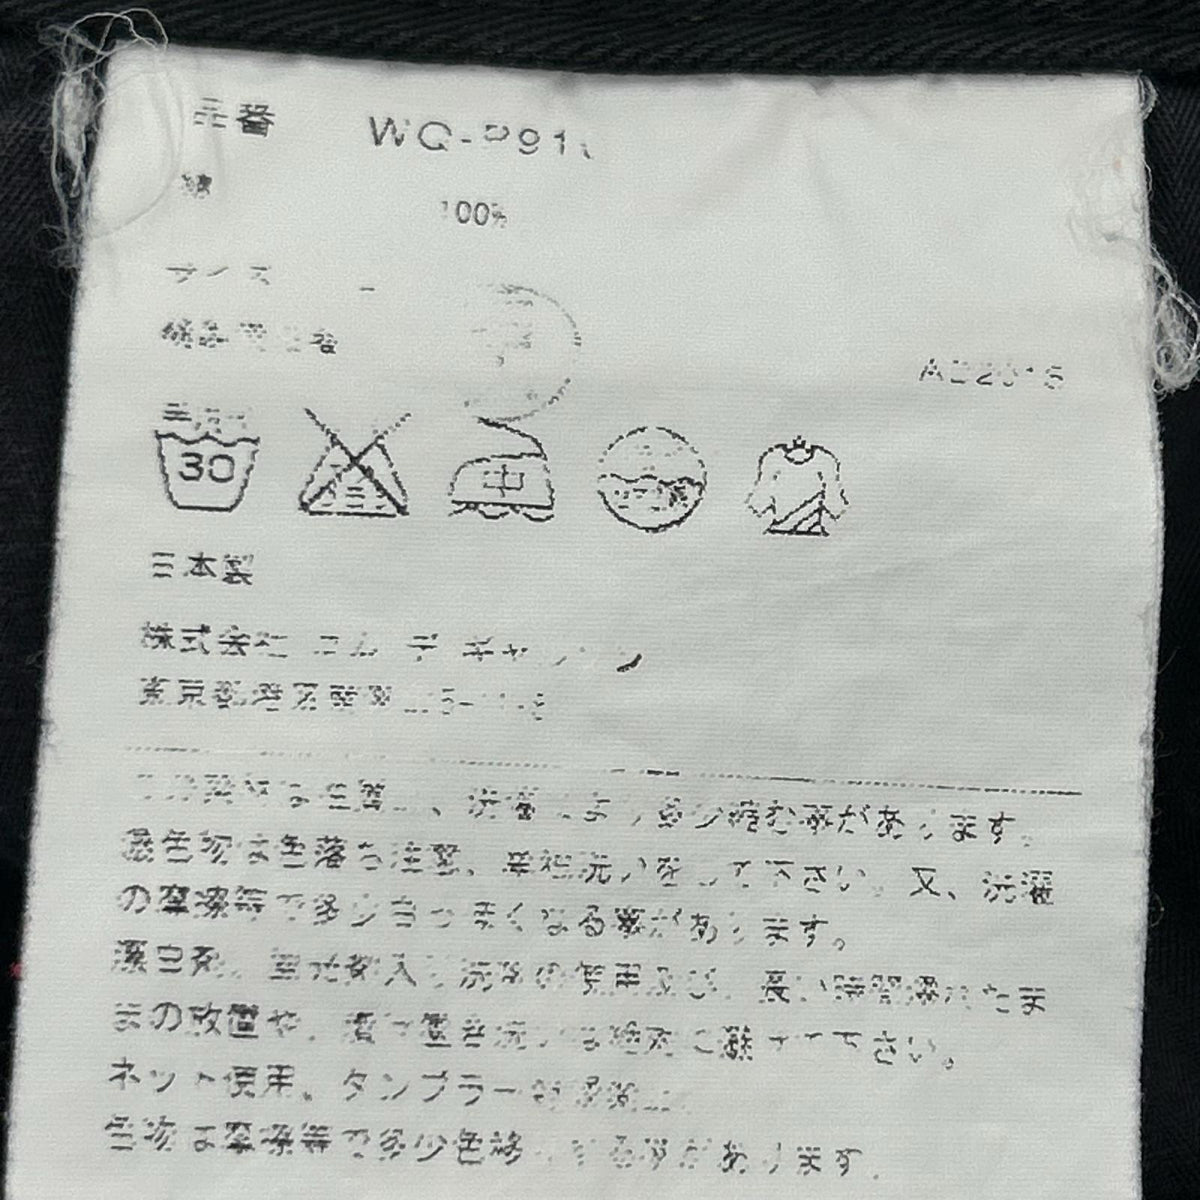 品番 WQ-P911
綿 100%
サイズ
組成表示者
AD2016
30 中
日本製
株式会社 コム デ ギャルソン
東京都港区南青山5-11-5
洗濯により多少縮む事があります。
濃色物は色落ち注意、単独洗いをして下さい。又、洗濯
の摩擦等で多少白っぽくなる事があります。
漂白剤、蛍光剤入り洗剤の使用及び、長い時間濡れたま
まの放置や、漬け置き洗いは絶対に避けて下さい。
ネット使用、タンブラー乾燥禁止。
色物は摩擦等で多少色移りする事があります。